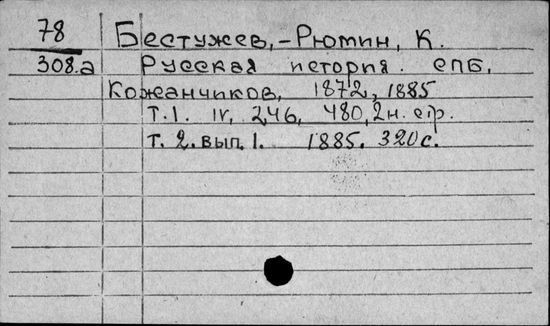 78 Бестужев,-Рюмин, К.
308.а Русская история. СПБ,
Кожанчиков, 1872, 1885
Т.1. IV, 246, 480, 2 н. стр.
Т. 2. вып. 1. 1885. 320 с.